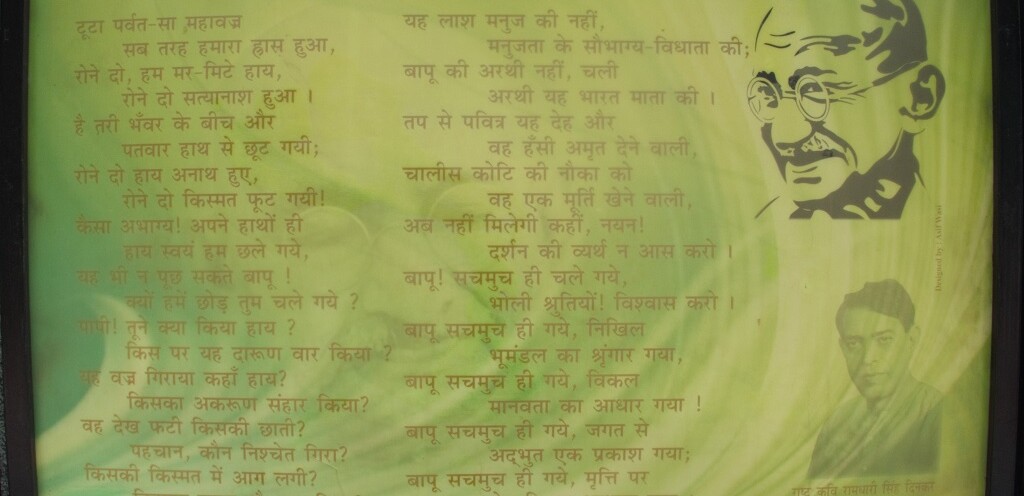 टूटा पर्वत-सा महावज्र
सब तरह हमारा ह्रास हुआ,
रोने दो, हम मर-मिटे हाय,
रोने दो सत्यानाश हुआ ।
है तरी भँवर के बीच और
पतवार हाथ से छूट गयी;
रोने दो हाय अनाथ हुए,
रोने दो किस्मत फूट गयी!
कैसा अभाग्य! अपने हाथों ही
हाय स्वयं हम छले गये,
यह भी न पूछ सकते बापू !
क्यों हमें छोड़ तुम चले गये ?
पापी! तूने क्या किया हाय ?
किस पर यह दारूण वार किया ?
यह वज्र गिराया कहाँ हाय?
किसका अकरूण संहार किया?
वह देख फटी किसकी छाती?
पहचान, कौन निश्चेत गिरा?
किसकी किस्मत में आग लगी?
यह लाश मनुज की नहीं,
मनुजता के सौभाग्य-विधाता की;
बापू की अरथी नहीं, चली
अरथी यह भारत माता की ।
तप से पवित्र यह देह और
वह हँसी अमृत देने बाली,
चालीस कोटि की नौका को
वह एक मूर्ति खेने वाली,
अब नहीं मिलेगी कहीं, नयन!
दर्शन की व्यर्थ न आस करो ।
बापू! सचमुच ही चले गये,
भोली श्रुतियों! विश्वास करो ।
बापू सचमुच ही गये, निखिल
भूमंडल का श्रृंगार गया,
बापू सचमुच ही गये, विकल
मानवता का आधार गया !
बापू सचमुच ही गये, जगत से
अद्भुत एक प्रकाश गया;
बापू सचमुच ही गये, मृत्ति पर
Designed by : Asif Wasi
राष्ट्र कवि रामधारी सिंह दिनकर